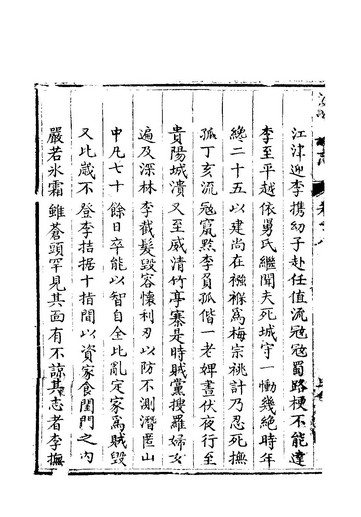 江津迎李携幼子赴任值流冦冦蜀路梗不能達
李至平越依舅氏繼聞夫死城守一慟幾絶時年
纔二十五以建尚在襁褓爲梅宗祧計乃忍死撫
孤丁亥流冦竄黔李負孤偕一老婢晝伏夜行至
貴陽城潰又至威清竹亭寨是時賊黨搜羅婦女
遍及深林李截髮毀容懷利刃以防不測潛匿山
中凡七十餘日卒能以智自全比亂定家爲賊毀
又比歲不登李拮据十指間以資家食閨門之内
嚴若氷霜雖蒼頭罕見其面有不諒其志者李撫